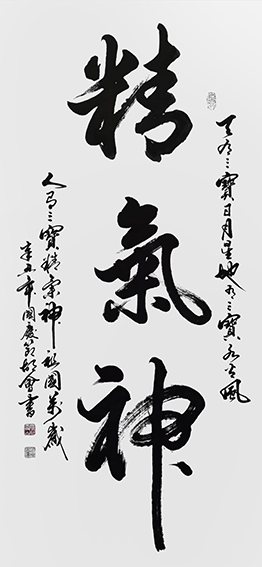 天有三寶日月星地有三寶水火風
精氣神
人有三寶精氣神祖國萬歲
辛丑年國慶節會書